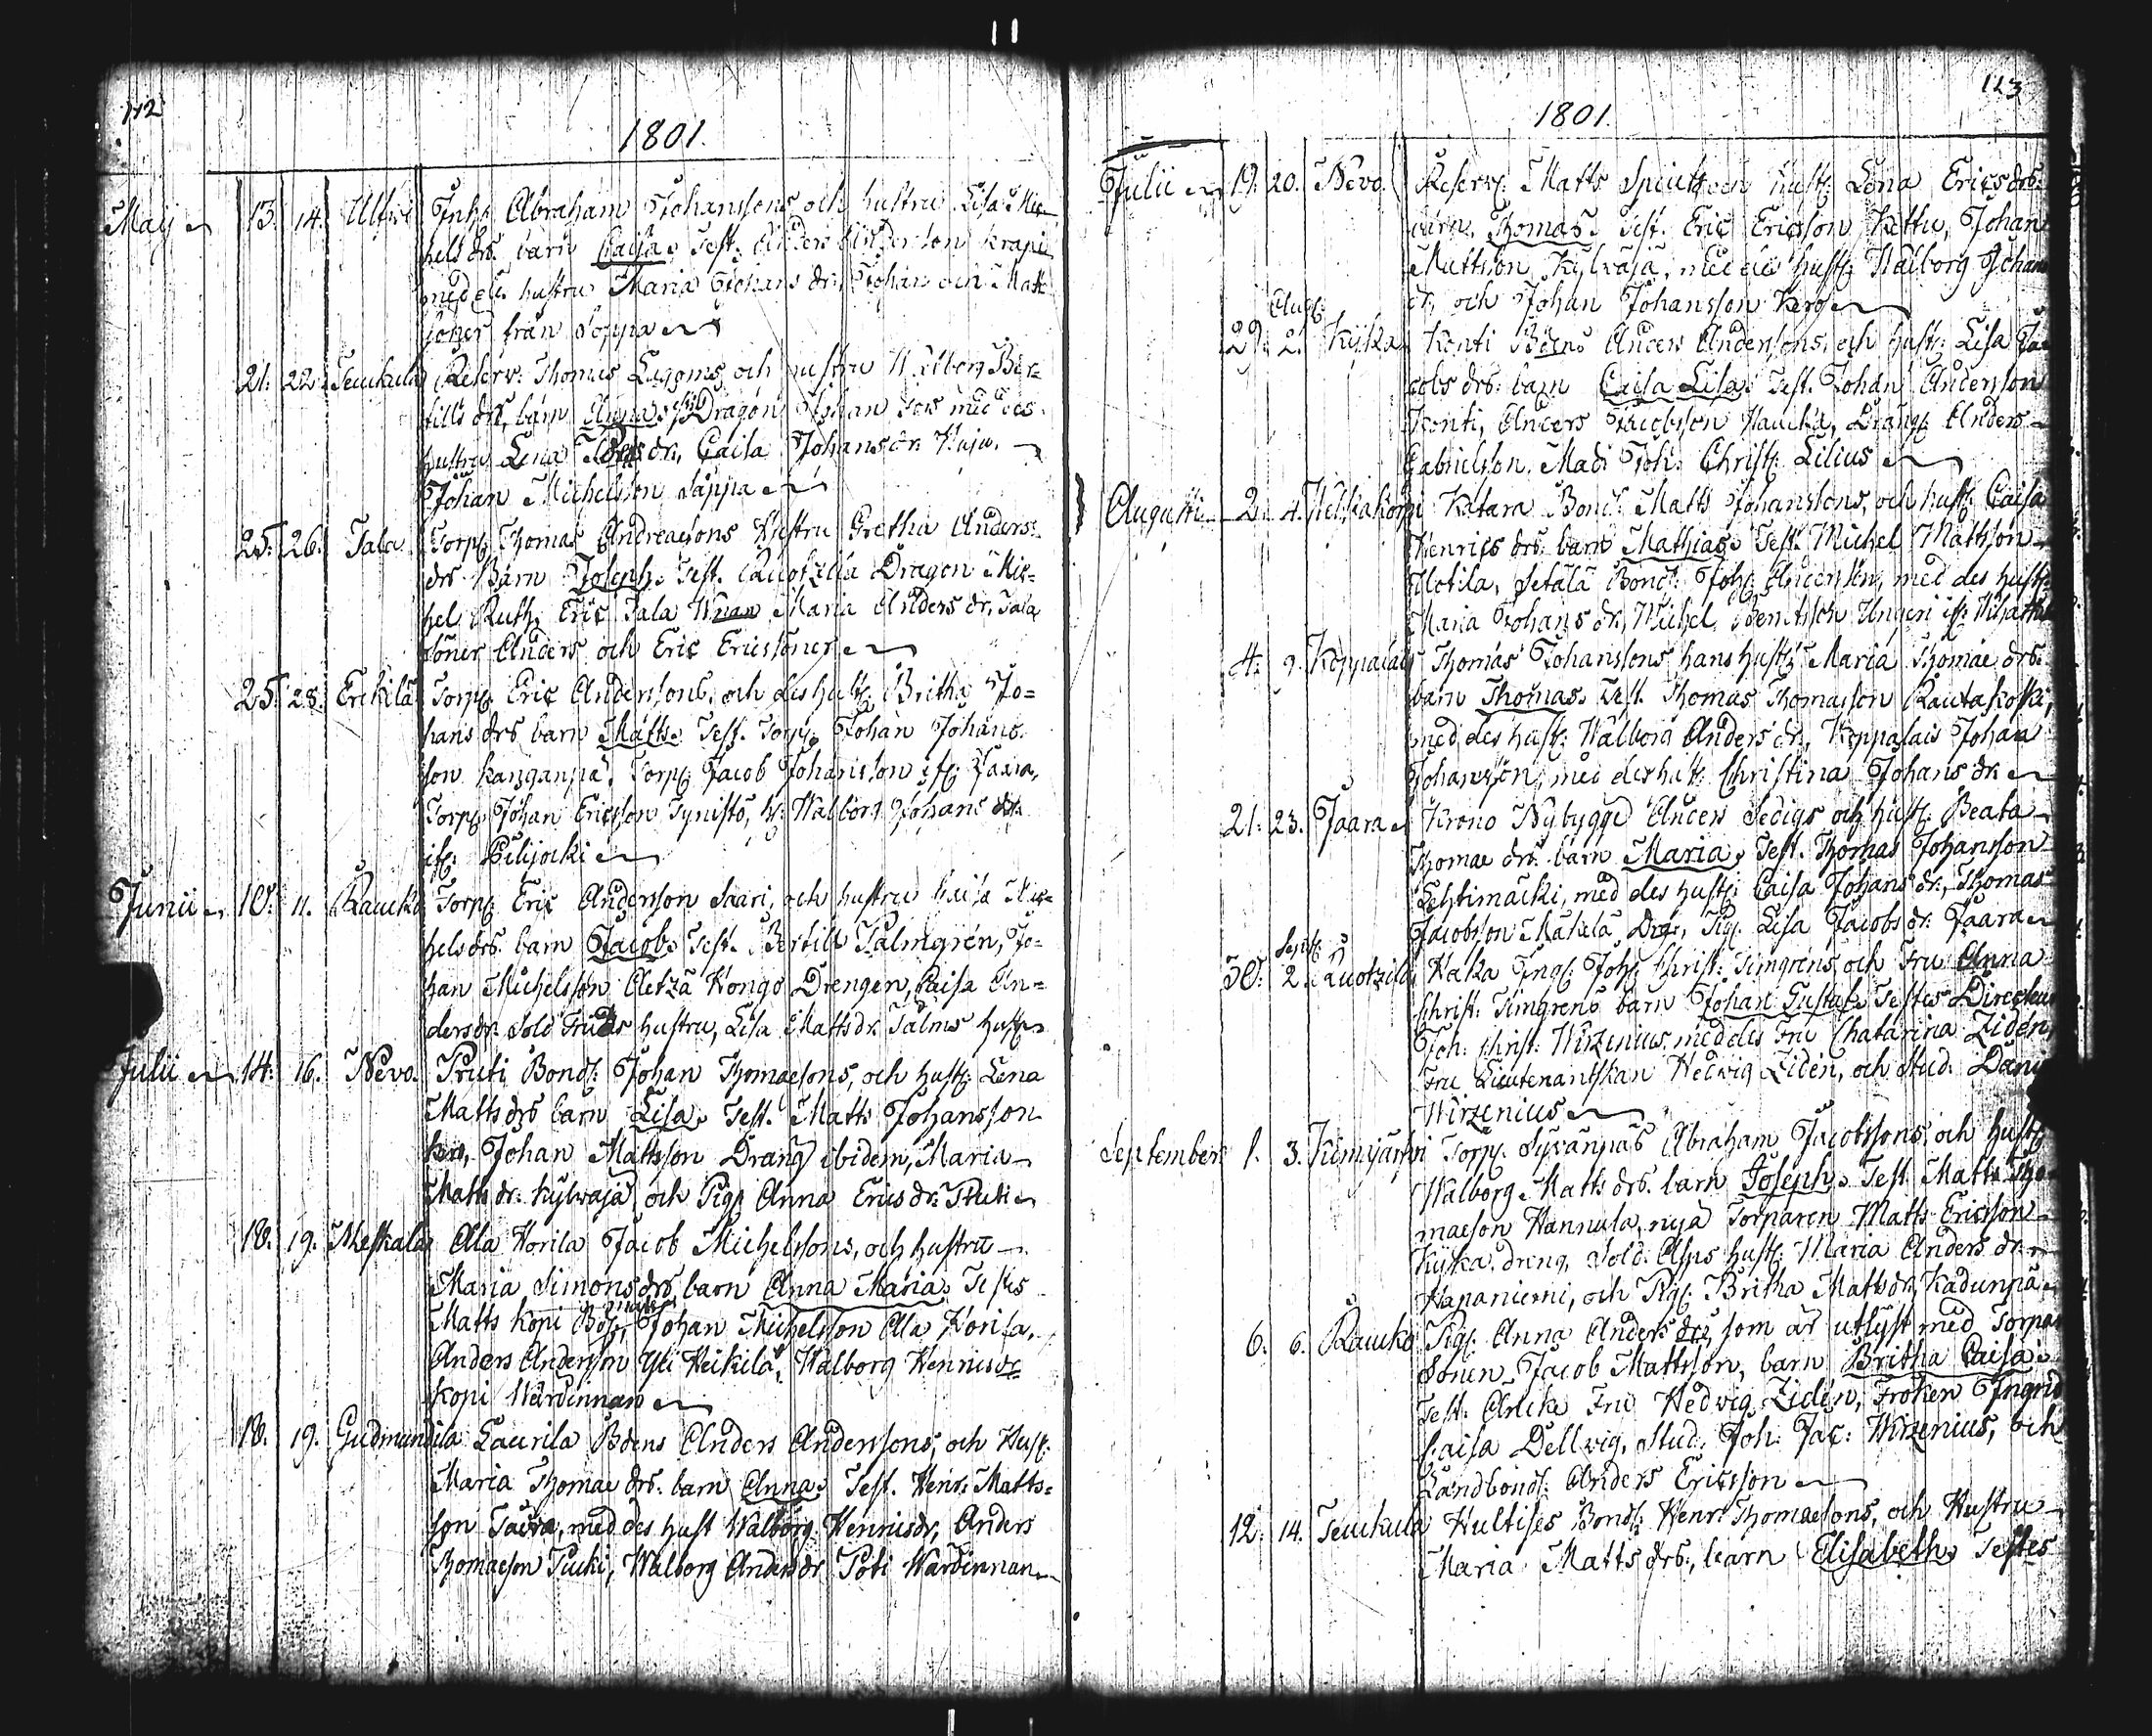 112
1801.
Maij 13. 14. Inhs Abraham Johanssons och hustru Lisa Mic-
hels drs. barn Caisa. Test. Anders Andersson krapi
med des hustru Maria Johans dr. Johan och Matts
söner från Soppa
21. 22. Teuckula Reserv. Thomas Lagoms och hustru Walborg Ber-
tills drs. barn Anna. Dragon Johan med des
hustru Lena dr, Caisa Johans dr.
Johan Michelsson Säppa
25. 26. Tala Torp. Thomas Andreæsons Hustru Gretha Anders-
drs. Barn Joseph. Test. Ruotzila Dragon Mic-
hel Ruth, Eric Tala Maria Anders dr, Tala
söner Anders och Eric Ericssöner
25. 28. Erckilä Torp. Eric Anderssons, och des hust. Britha Jo-
hans drs barn Matts. Test. Torp. Johan Johans-
son kanganpä, Torp. Jacob Johansson Jaara,
Torp. Johan Ericsson Tynistö, H. Walborg Johans dr.
Junii 10. 11. Raucko Torp. Eric Andersson Saari, och hustru Caisa Mic-
hels drs. barn Jacob. Test. Bertill Palmgren, Jo-
han Michelsson Aletzä Kongo Drengen, Caisa An-
ders dr. Sold hustru, Lisa Matts dr. Palms hust.
Julii 14. 16. Nevo. Pruti Bond. Johan Thomæsons, och hust. Lena
Matts drs barn Lisa. Test. Matts Johansson
Johan Mattsson Dräng ibidem, Maria
Matts dr. Kylvaja, och Pig. Anna Erics dr.
18. 19. Meskala Ala Korila Jacob Michelssons, och hustru
Maria Simons drs barn Anna Maria. Testes
Matts Kopi Johan Michelsson Ala Korila,
Anders Andersson Yli Heikilä, Walborg Henrics dr
Kopi Wärdinnan
18. 19. Gudmundila Laurila Bdens Anders Anderssons, och Hust.
Maria Thomæ drs. barn Anna. Test. Henr. Matts-
son med des hust Walborg Henrics dr, Anders
Thomæson Walborg Anders dr Wärdinnan
113
1801
Julii 19. 20. Nevo. Reserv. Matts och hust. Lena Erics drs.
barn, Thomas. Test. Eric Ericsson Kettu, Johan
Mattsson Kylvaja, med des hust. Walborg Johans
dr, och Johan Johansson Kero
Aug.
29. 2. Kyka Konti Bdens Anders Anderssons, och hust. Lisa Ja-
cobs drs. barn Caisa Lisa. Test. Johan Andersson
Konti, Anders Jacobsson Haucka, Dräng. Anders
Gabrielsson, Mad. Joh. Christ. Lilius
Augusti 2. 4. Welhakorpi Katara Bond. Matts Johanssons, och hust. Caisa
Henrics drs. barn Mathias. Test. Michel Mattsson
Motila, Setälä Bond. Joh. Andersson, med des hust.
Maria Johans dr, Michel
4. 9. Koppalais Thomas Johanssons hans hust. Maria Thomæ drs.
barn Thomas. Test. Thomas Thomasson Rautakoski,
med des hust. Walborg Anders dr, Koppalais Johan
Johansson, med des hust. Christina Johans dr.
21. 23. Jaara Krono Nybygge Anders och hust. Beata
Thomæ drs. barn Maria. Test. Thomas Johansson
Lehtimäcki, med des hust. Caisa Johans dr., Thomas
Jacobsson Mäkelä Drg, Pig. Lisa Jacobs dr. Jaara
Sept.
30. 2. Ruotzila Haka Ing. Joh. Christ. Timgrens och Fru Anna
Christ. Timgrens barn Johan Gustaf. Testes Directeur
Joh. Christ. Wirzenius, med des Fru Chatarina Ziden,
Fru Lieutenantskan Hedvig Ziden, och Stud. Dani
Wirzenius
September 1. 3. Kiimijärfvi Torp. Syvänpäs Abraham Jacobssons, och hust.
Walborg Matts drs. barn Joseph. Test. Matts Tho-
mæson Hannula, nya Torparen Matts Ericsson
Kyka. dreng. Sold. Alms hust. Maria Anders dr
Hapaniemi, och Pig. Britha Matts dr. Kadunpä
6. 6. Raucko Pig. Anna Anders drs, som är utlyst med Torpar
Sonen Jacob Mattsson, barn Britha Caisa.
Test. Encke Fru Hedvig Ziden, Fröken Ingrid
Caisa Dellvig, Stud. Joh. Jac. Wirzenius, och
Landbond. Anders Ericsson
12. 14. Teuckula Hultises Bond. Henr. Thomæsons, och Hustru
Maria Matts drs., barn Elisabeth. Testes